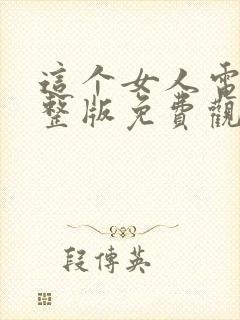 這个女人電
整版免費觀
段傳英